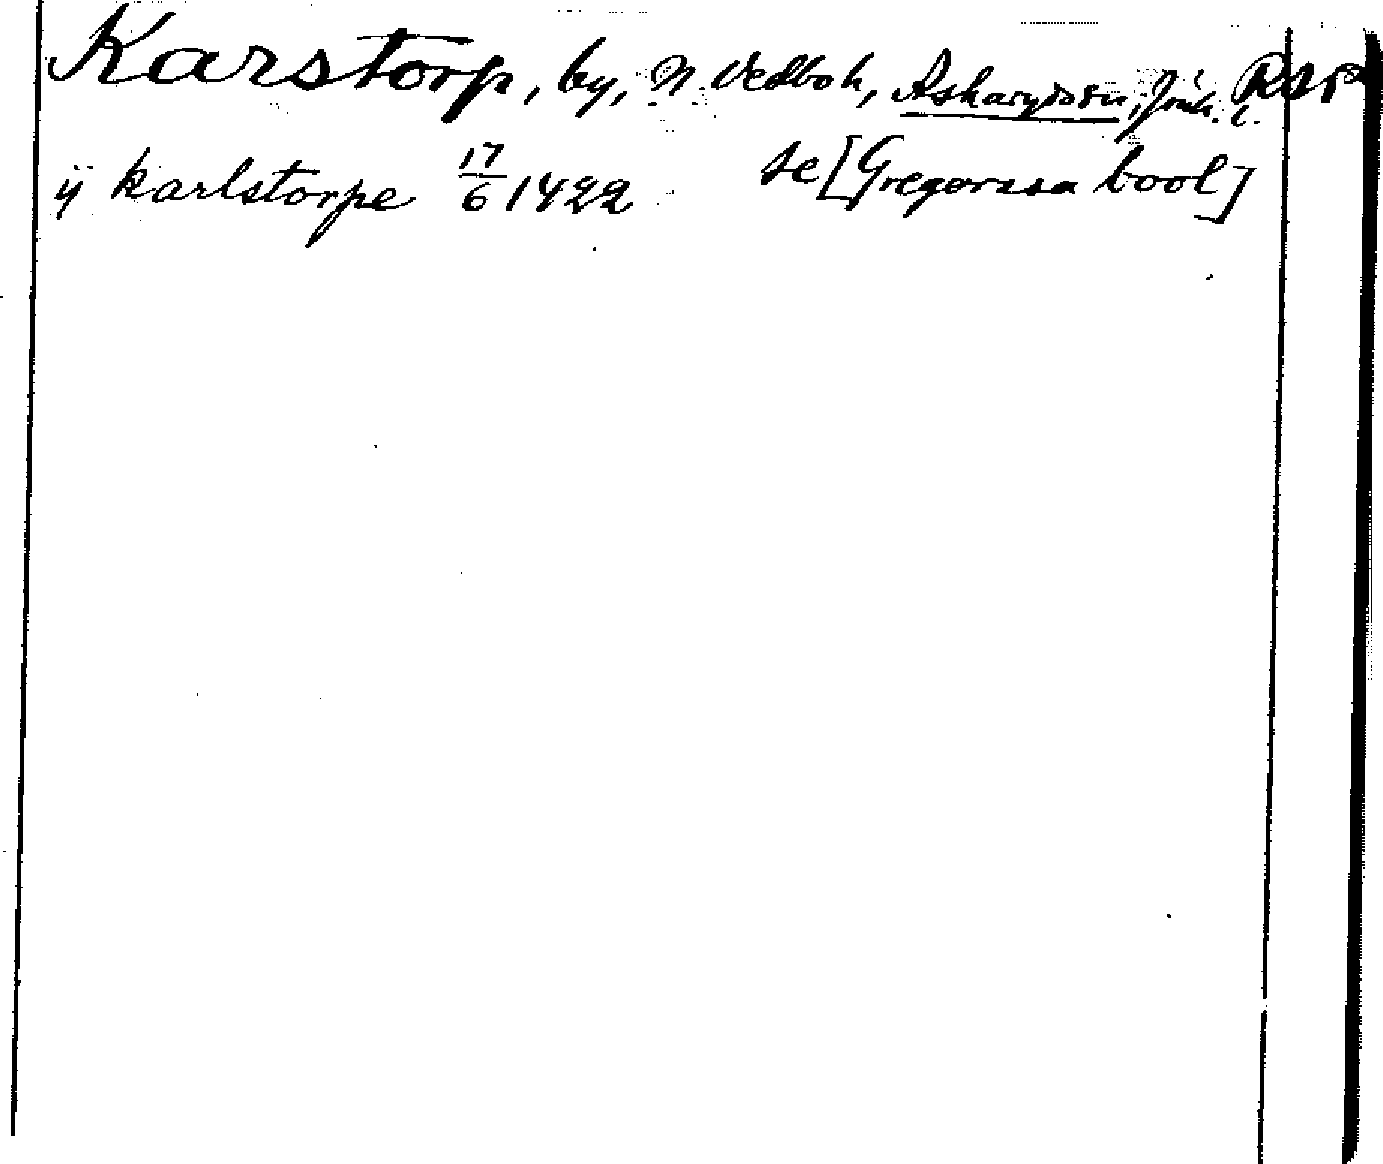 Karstorp, by, N. Vedboh, Askaryds sn, Jönk. l. RAp
ij karlstorpe 17/6 1422 se [Gregerssa bool]